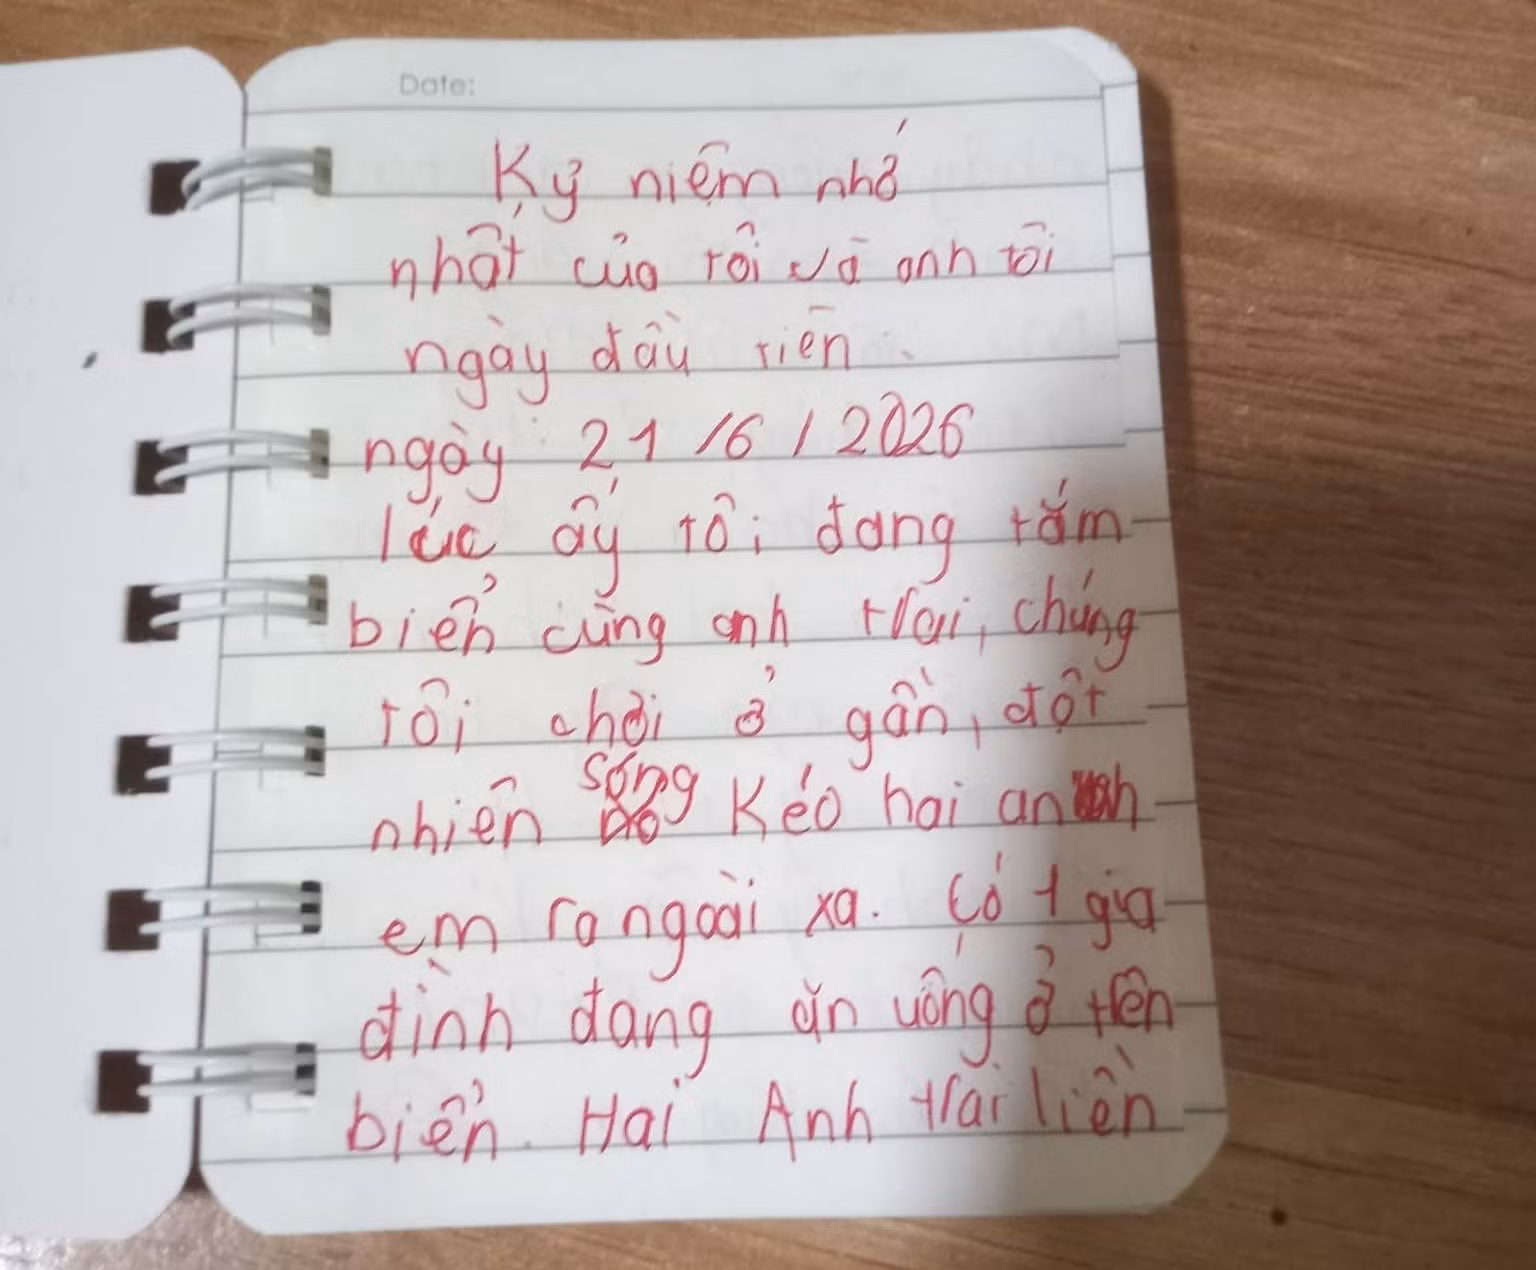 Date:
Kỷ niệm nhớ
nhất của tôi và anh tôi
ngày đầu tiên.
ngày: 21/6/2026
lúc ấy tôi đang tắm
biển cùng anh trai, chúng
tôi chơi ở gần, đột
nhiên sóng kéo hai anh
em ra ngoài xa. Có 1 gia
đình đang ăn uống ở trên
biển. Hai Anh trai liền